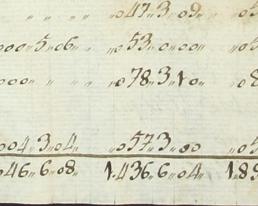 „ „ „ „ „047„3„09„ „05
000„5„06„ „ „053„0„00„ „05
000„ „ „ „ „078„3„10„ „08
004„3„04„ „057„3„00 „05
046„6„08„ 1„436„6„04„ 1.89